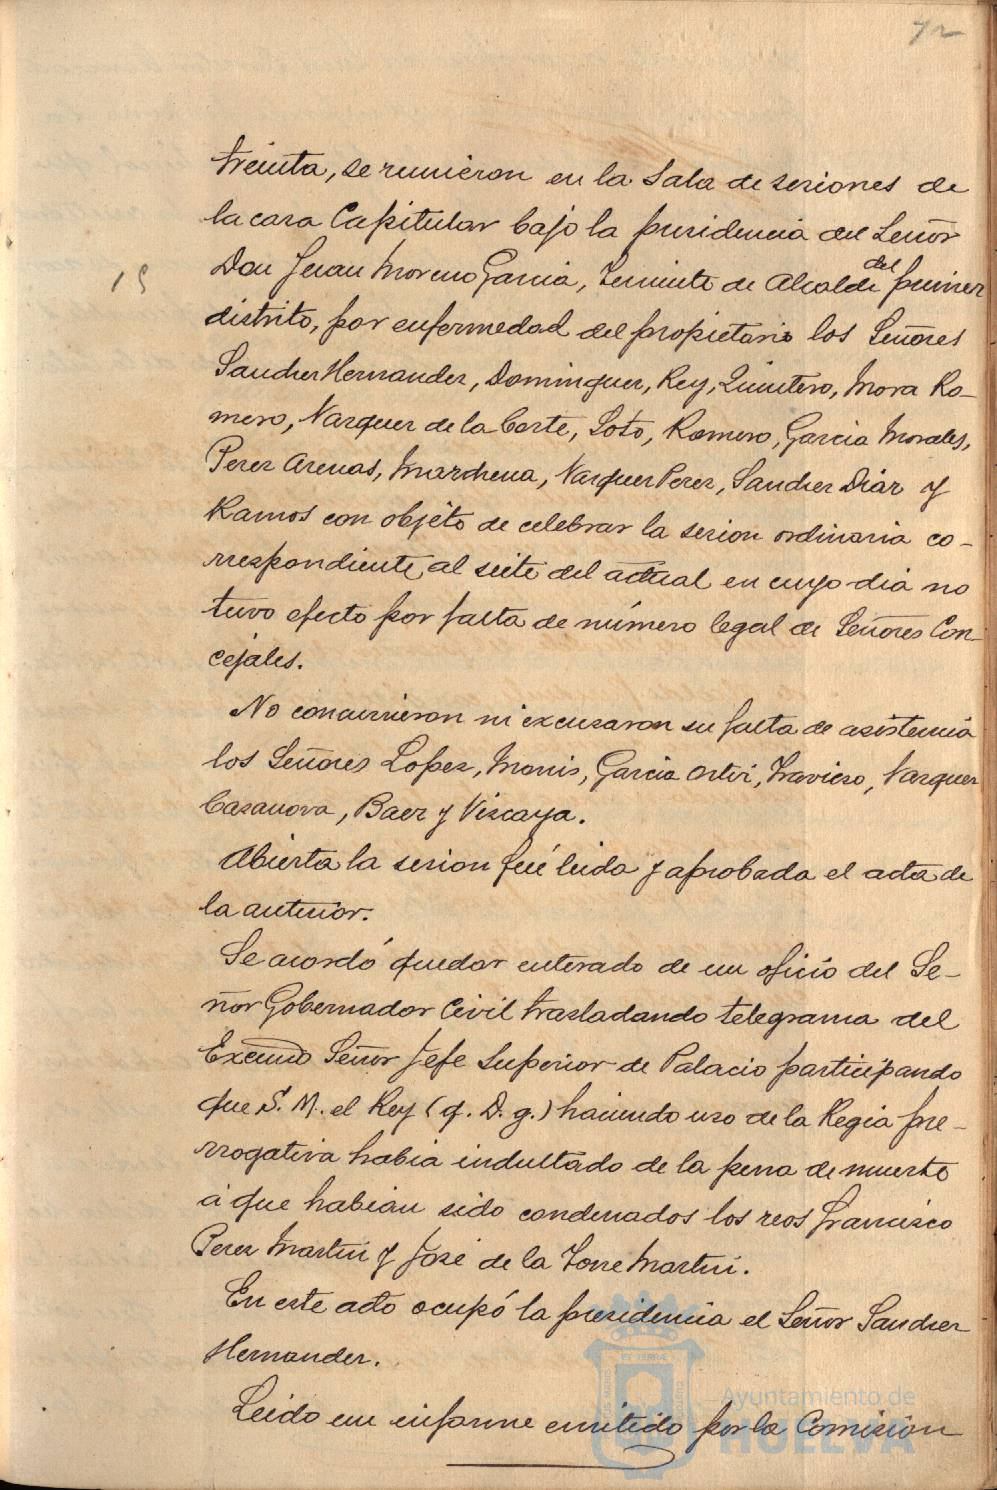 72
treinta, se reunieron en la Sala de sesiones de
la casa Capitular bajo la presidencia del Señor
15
Don Juan Moreno Garcia, Teniente de Alcalde del primer
distrito, por enfermedad del propietario los Señores
Sanchez Hernandez, Dominguez, Rey, Quintero, Mora Ro-
mero, Vazquez de la Corte, Soto, Romero, Garcia Morales,
Perez Arenas, Marchena, Vazquez Perez, Sanchez Diaz y
Ramos con objeto de celebrar la sesion ordinaria co-
rrespondiente al siete del actual en cuyo dia no
tuvo efecto por falta de número legal de Señores Con-
cejales.
No concurrieron ni excusaron su falta de asistencia
los Señores Lopez, Monis, Garcia Ortiz, Travieso, Vazquez
Casanova, Baez y Viscaya.
Abierta la sesion fué leida y aprobada el acta de
la anterior.
Se acordó quedar enterado de un oficio del Se-
ñor Gobernador Civil trasladando telegrama del
Excmo Señor Jefe Superior de Palacio participando
que S. M. el Rey (q. D. g.) haciendo uso de la Regia pre-
rrogativa habia indultado de la pena de muerte
á que habian sido condenados los reos Francisco
Perez Martin y José de la Torre Martin.
En este acto ocupó la presidencia el Señor Sanchez
Hernandez.
Leido un informe emitido por la Comision
Ayuntamiento de
HUELVA